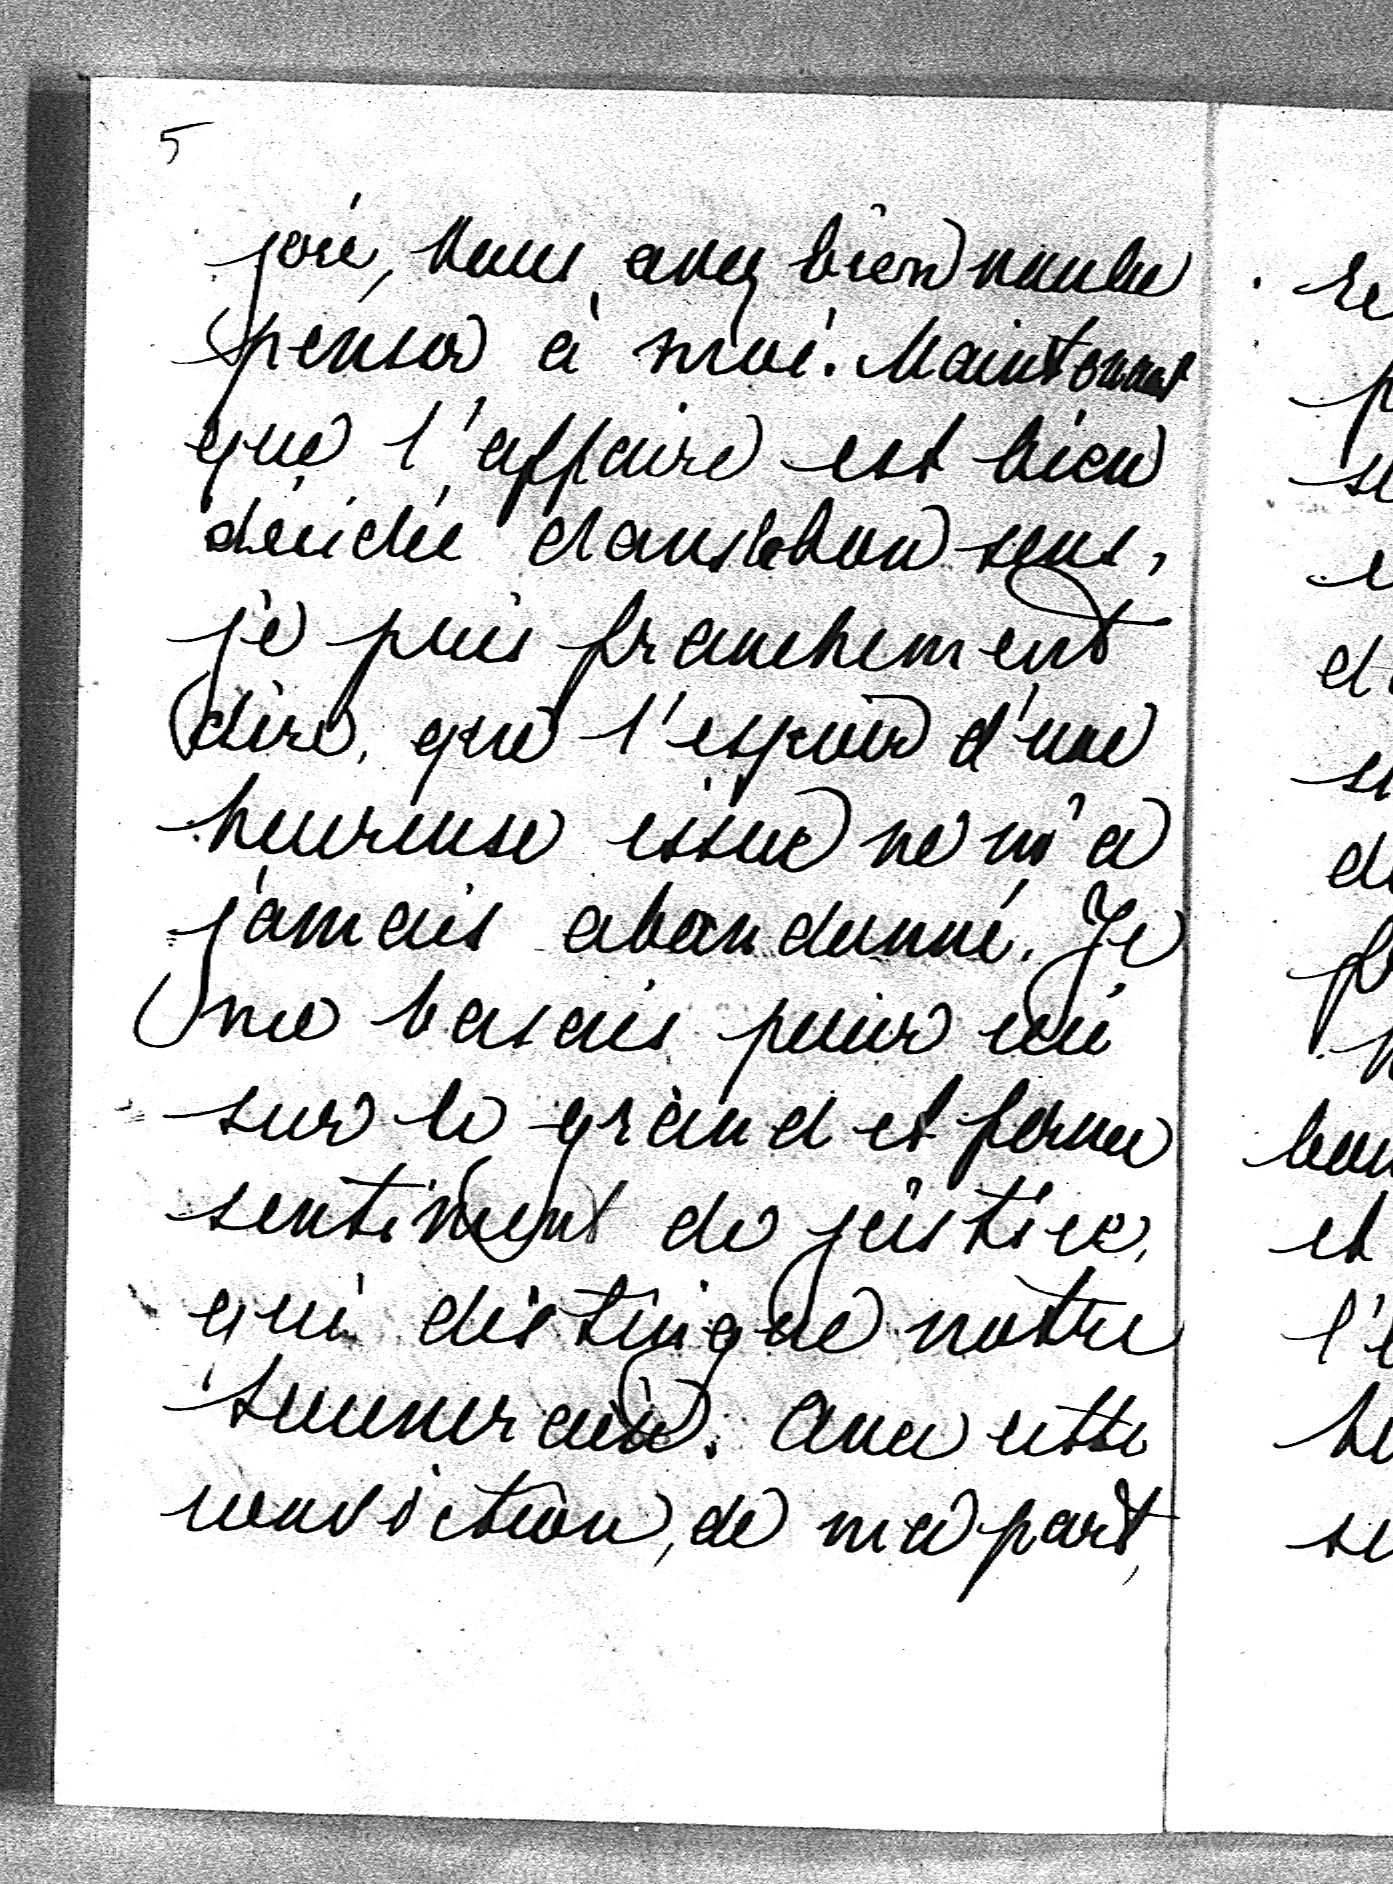 5
joie, vous avez bien voulu
penser à moi. Maintenant
que l'affaire est bien
décidée dans le bon sens,
je puis franchement
dire, que l'espoir d'une
heureuse issue ne m'a
jamais abandonné. Je
me basais pour cela
sur le grand et ferme
sentiment de justice,
qui distingue notre
souverain. Avec cette
conviction, de ma part,